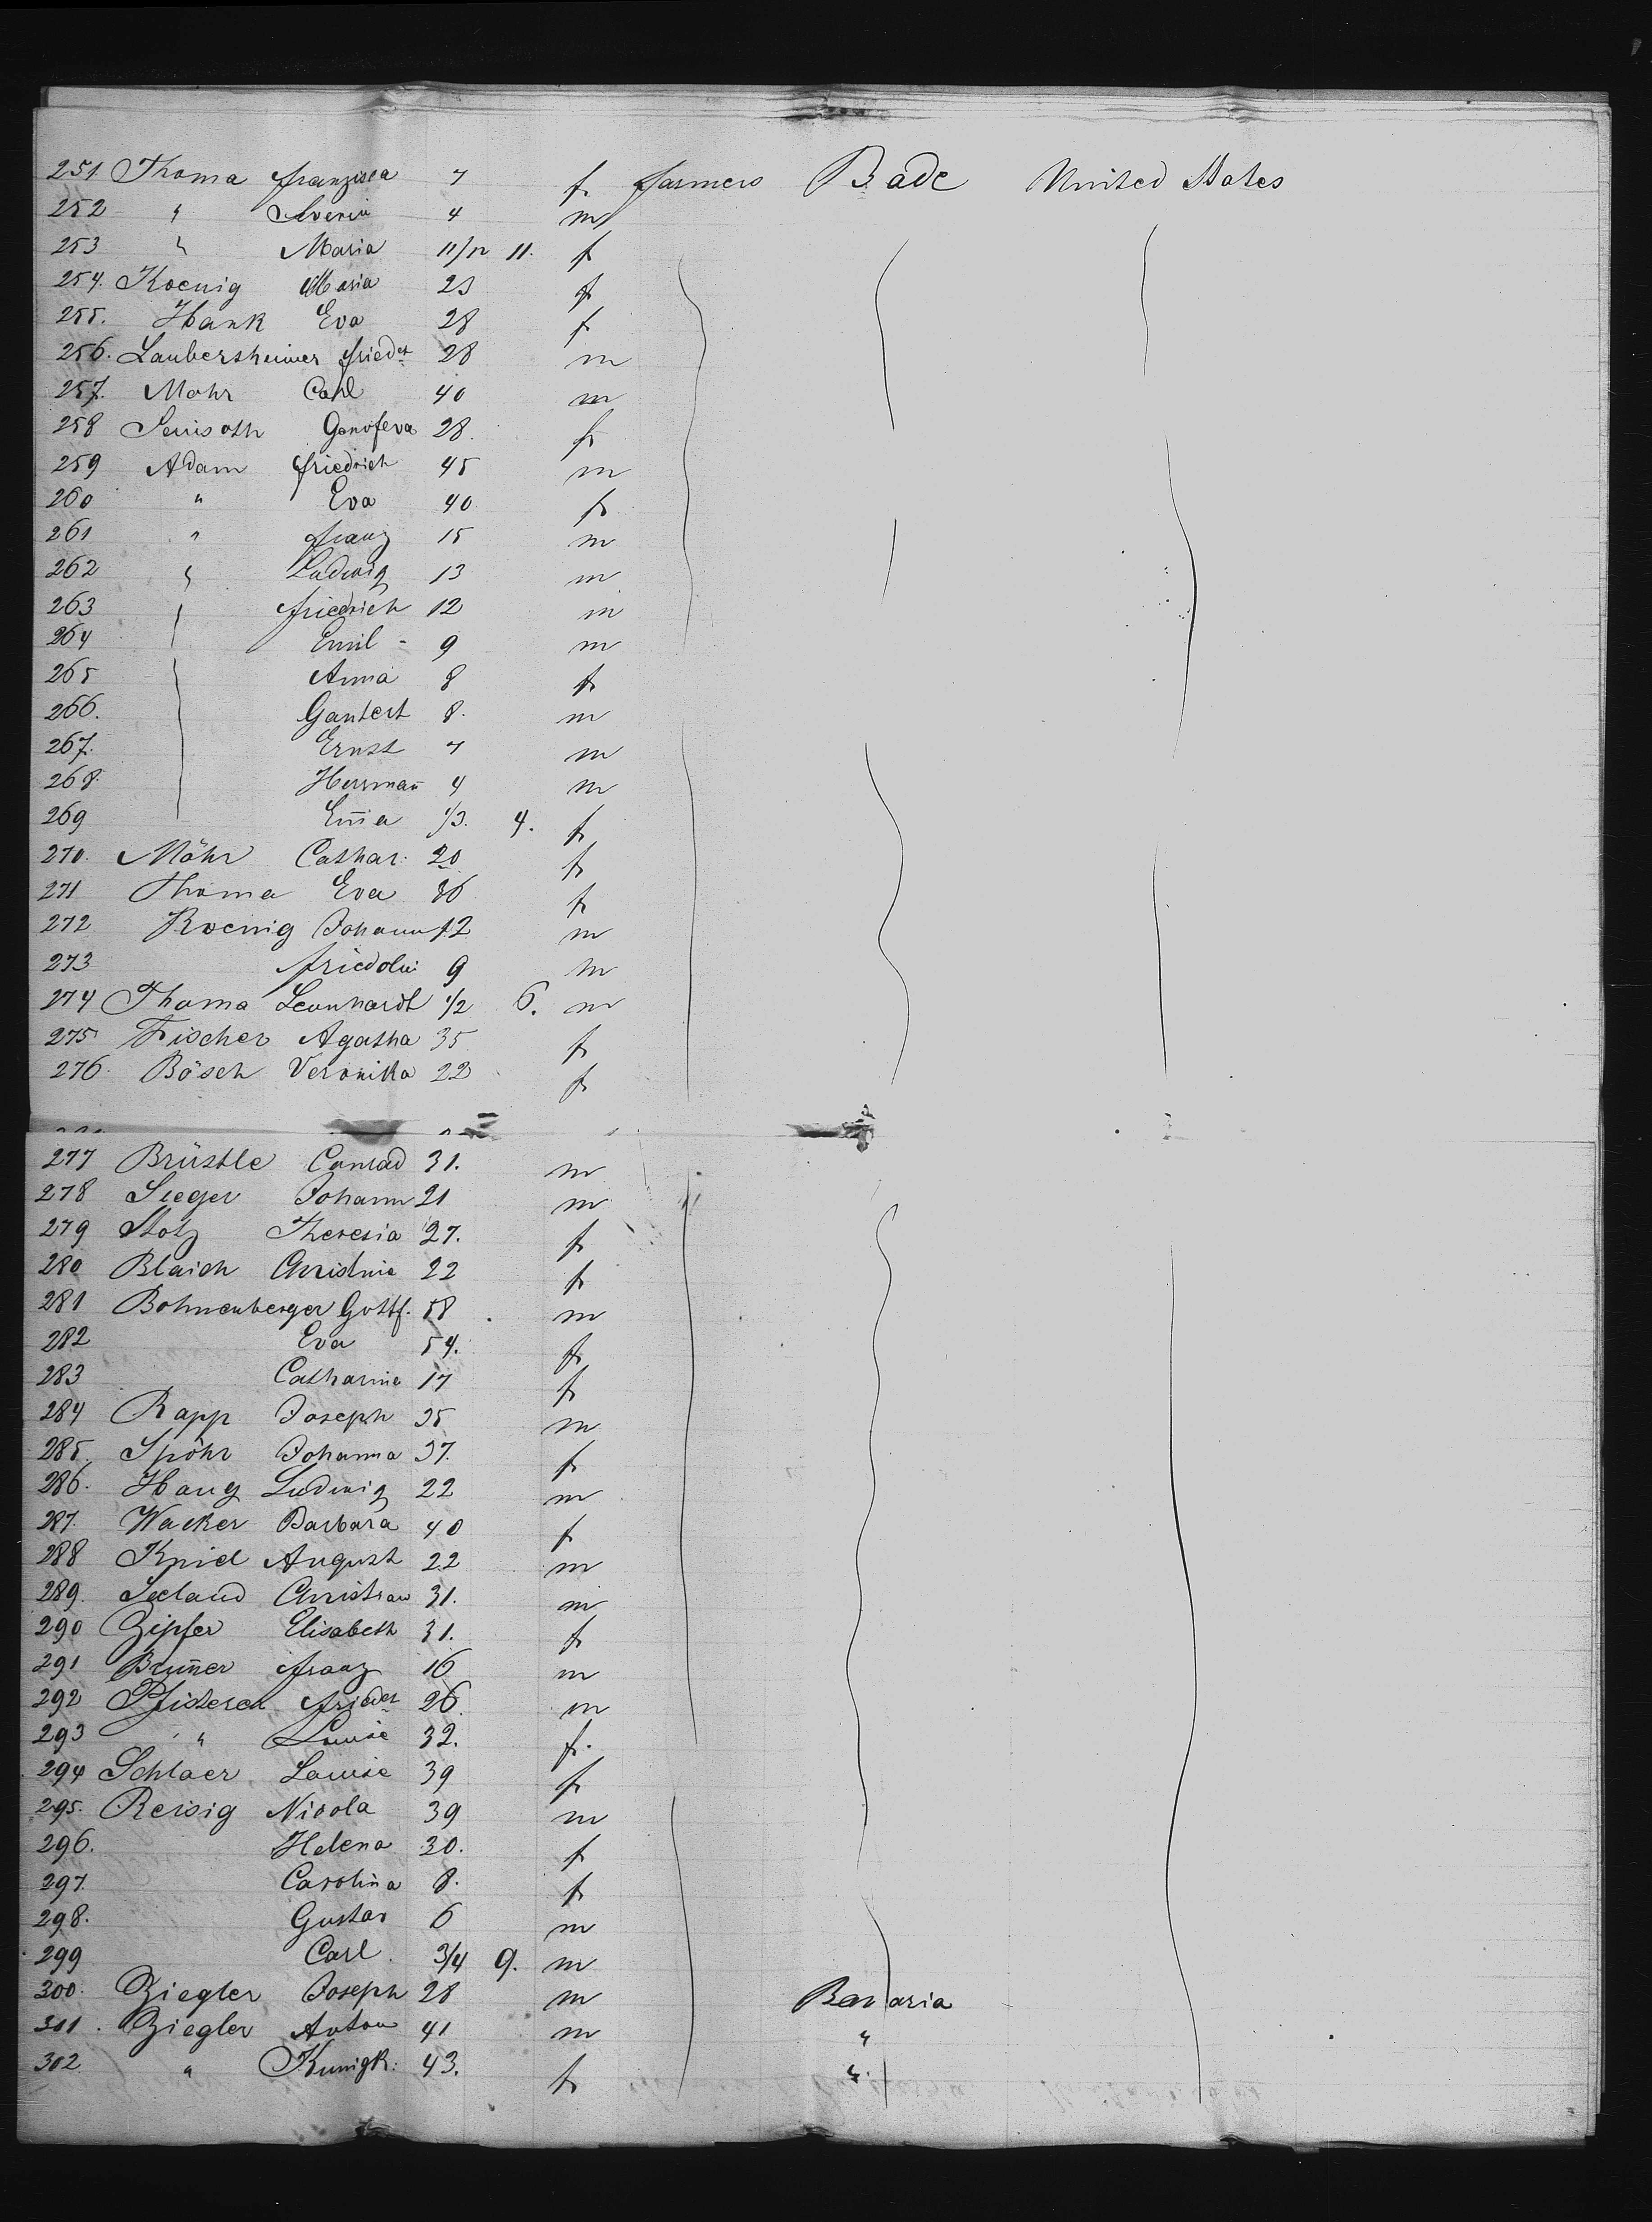 251 Thoma Franzisca 7 f. farmers Bade United States
252 " Severin 4 m
253 " Maria 11/12 11. f
254. Koenig Maria 23 f
255. Hank Eva 28 f
256. Laubersheimer Friedr 28 m
257. Mohr Carl 40 m
258 Genofeva 28. f
259 Adam Friedrich 45 m
260 " Eva 40 f
261 " Franz 15 m
262 " Ludwig 13 m
263 Friedrich 12 m
264 Emil - 9 m
265 Anna 8 f
266. Gantert 8. m
267. Ernst 7 m
268. Hermañ 4 m
269 Em̄a 1/3. 4. f
270. Möhr Cathar. 20 f
271 Thoma Eva 36 f
272 Koenig Johann 12 m
273 Friedolin 9 m
274 Thoma Leonhardt 1/2 6. m
275 Fischer Agatha 35 f
276. Bösch Veronika 22 f
277 Brüstle Conrad 31. m
278 Seeger Johann 21 m
279 Stolz Theresia 27. f
280 Blaich Christine 22 f
281 Bohnenberger Gottf. 58 m
282 Eva 54. f
283 Catharine 17 f
284 Rapp Joseph 35 m
285. Spöhr Johanna 37. f
286. Haug Ludwig 22 m
287. Wacker Barbara 40 f
288 Knid August 22 m
289. Seeland Christian 31. m
290 Zipfer Elisabeth 31. f
291 Bruñer Franz 16 m
292 Pfisterer Friedr 26 m
293 " Louise 32. f.
294 Schlaer Louise 39 f
295. Reisig Nicola 39 m
296. Helena 30. f
297. Carolina 8. f
298. Gustav 6 m
299 Carl. 3/4 9. m
300. Ziegler Joseph 28 m Bavaria
301. Ziegler Anton 41 m "
302 " Kunigk: 43. f "